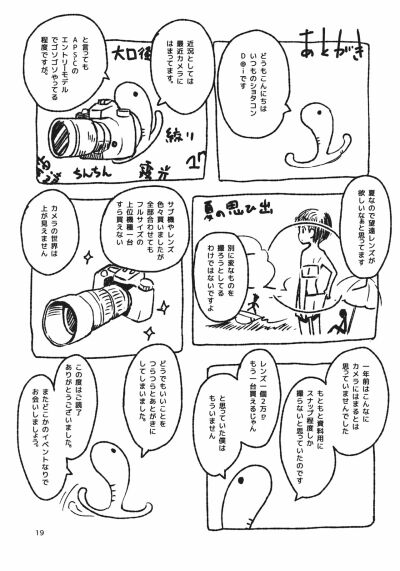 あとがき
どうもこんにちは
いつものショタコン
D@iです
近況としては
最近カメラに
はまってます。
と言っても
APSCの
エントリーモデル
でゴソゴソやってる
程度ですが。
大口径
絞り
ちんちん
夏なので望遠レンズが
欲しいなぁと思ってます
夏の思ひ出
別に変なものを
撮ろうとしてる
わけではないですよ
サブ機やレンズ
色々買いましたが
全部合わせても
フルサイズの
上位機種一台
すら買えない
カメラの世界は
上が見えません
一年前はこんなに
カメラにはまるとは
思っていませんでした
もともと資料用に
スナップ程度しか
撮らないと思っていたのです
レンズ一個2万か
もう一台買えるじゃん
と思っていた僕は
もういません
どうでもいいことを
つらつらとあとがきに
してしまいました。
この度はご読了
ありがとうございました。
またどこかのイベントなりで
お会いしましょう。
19